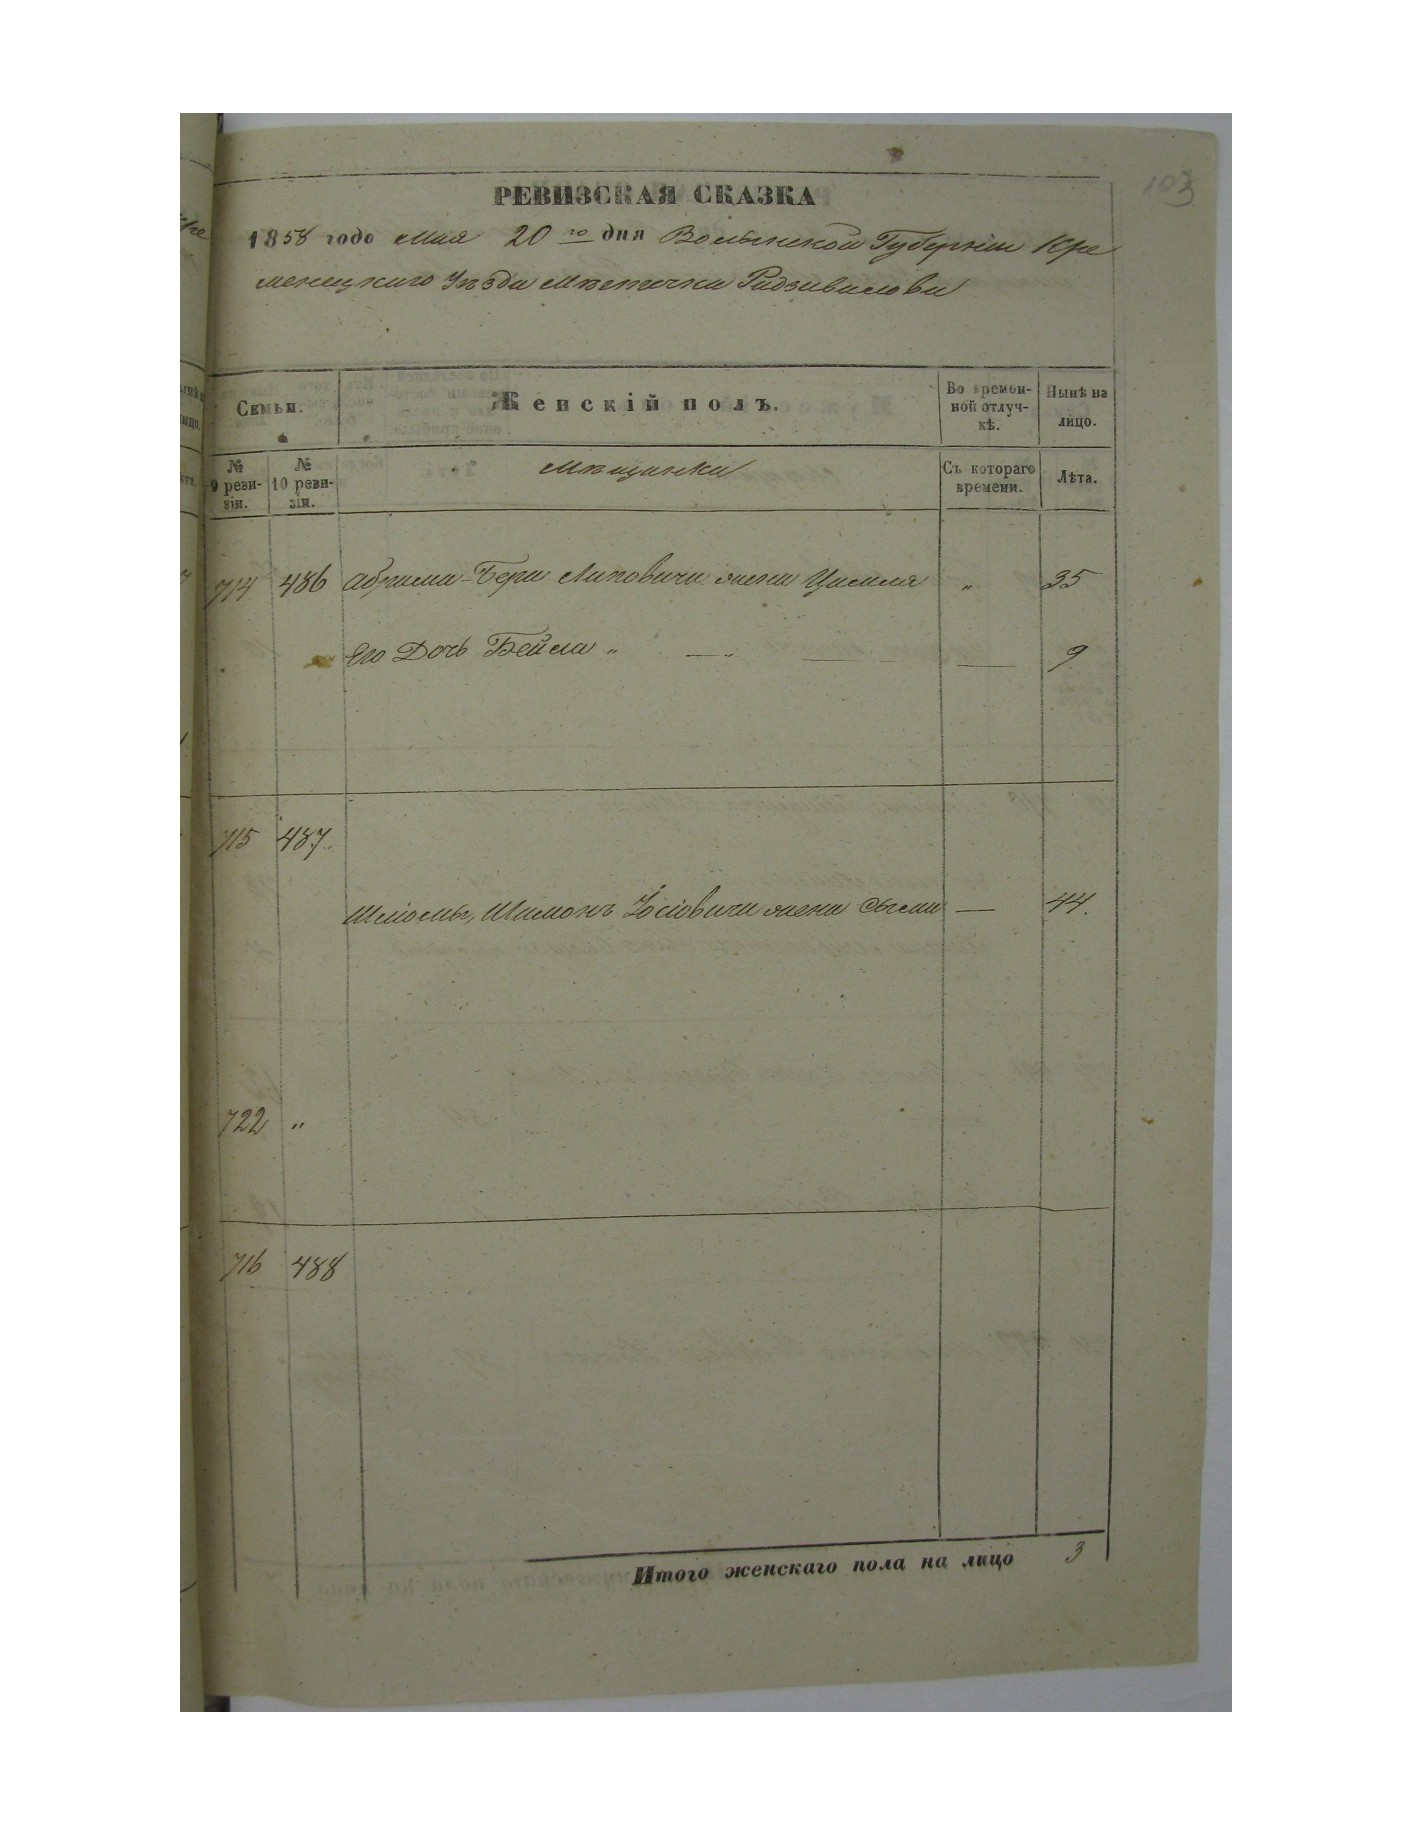 103
РЕВИЗСКАЯ СКАЗКА
1858 года Мая 20го дня Волынской Губерніи Кре
менецкаго Уѣзда Мѣстечка Радзивилова
Семьи.
Женскій полъ.
Во времен-
ной отлуч-
кѣ.
Нынѣ на
лицо.
№
9 реви-
зіи.
№
10 реви-
зіи.
Мѣщанки
Съ котораго
времени.
Лѣта.
714 486 Абрама-Бера Липовича жена " 35
Его Дочь Бейла " — " — — 9
715 487.
Шліомы, Шимонъ Іосіовича жена — 44.
722 "
716 488
Итого женскаго пола на лицо 3